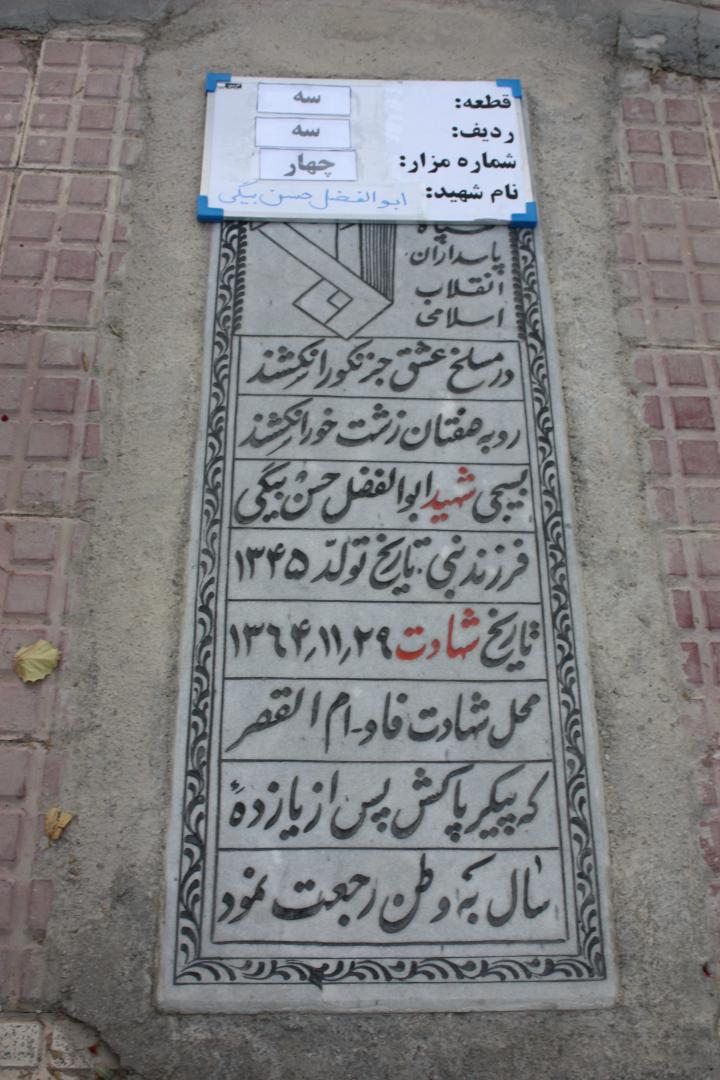 قطعه: سه
ردیف: سه
شماره مزار: چهار
نام شهید: ابوالفضل حسن بیگی
سپاه
پاسداران
انقلاب
اسلامی
در مسلخ عشق جز نکو را نکشند
روبه صفتان زشت خو را نکشند
بسیجی شهید ابوالفضل حسن بیگی
فرزند نبی: تاریخ تولد ۱۳۴۵
تاریخ شهادت ۱۳۶۴٫۱۱٫۲۹
محل شهادت فاو-ام القصر
که پیکر پاکش پس از یازدهٔ
سال به وطن رجعت نمود